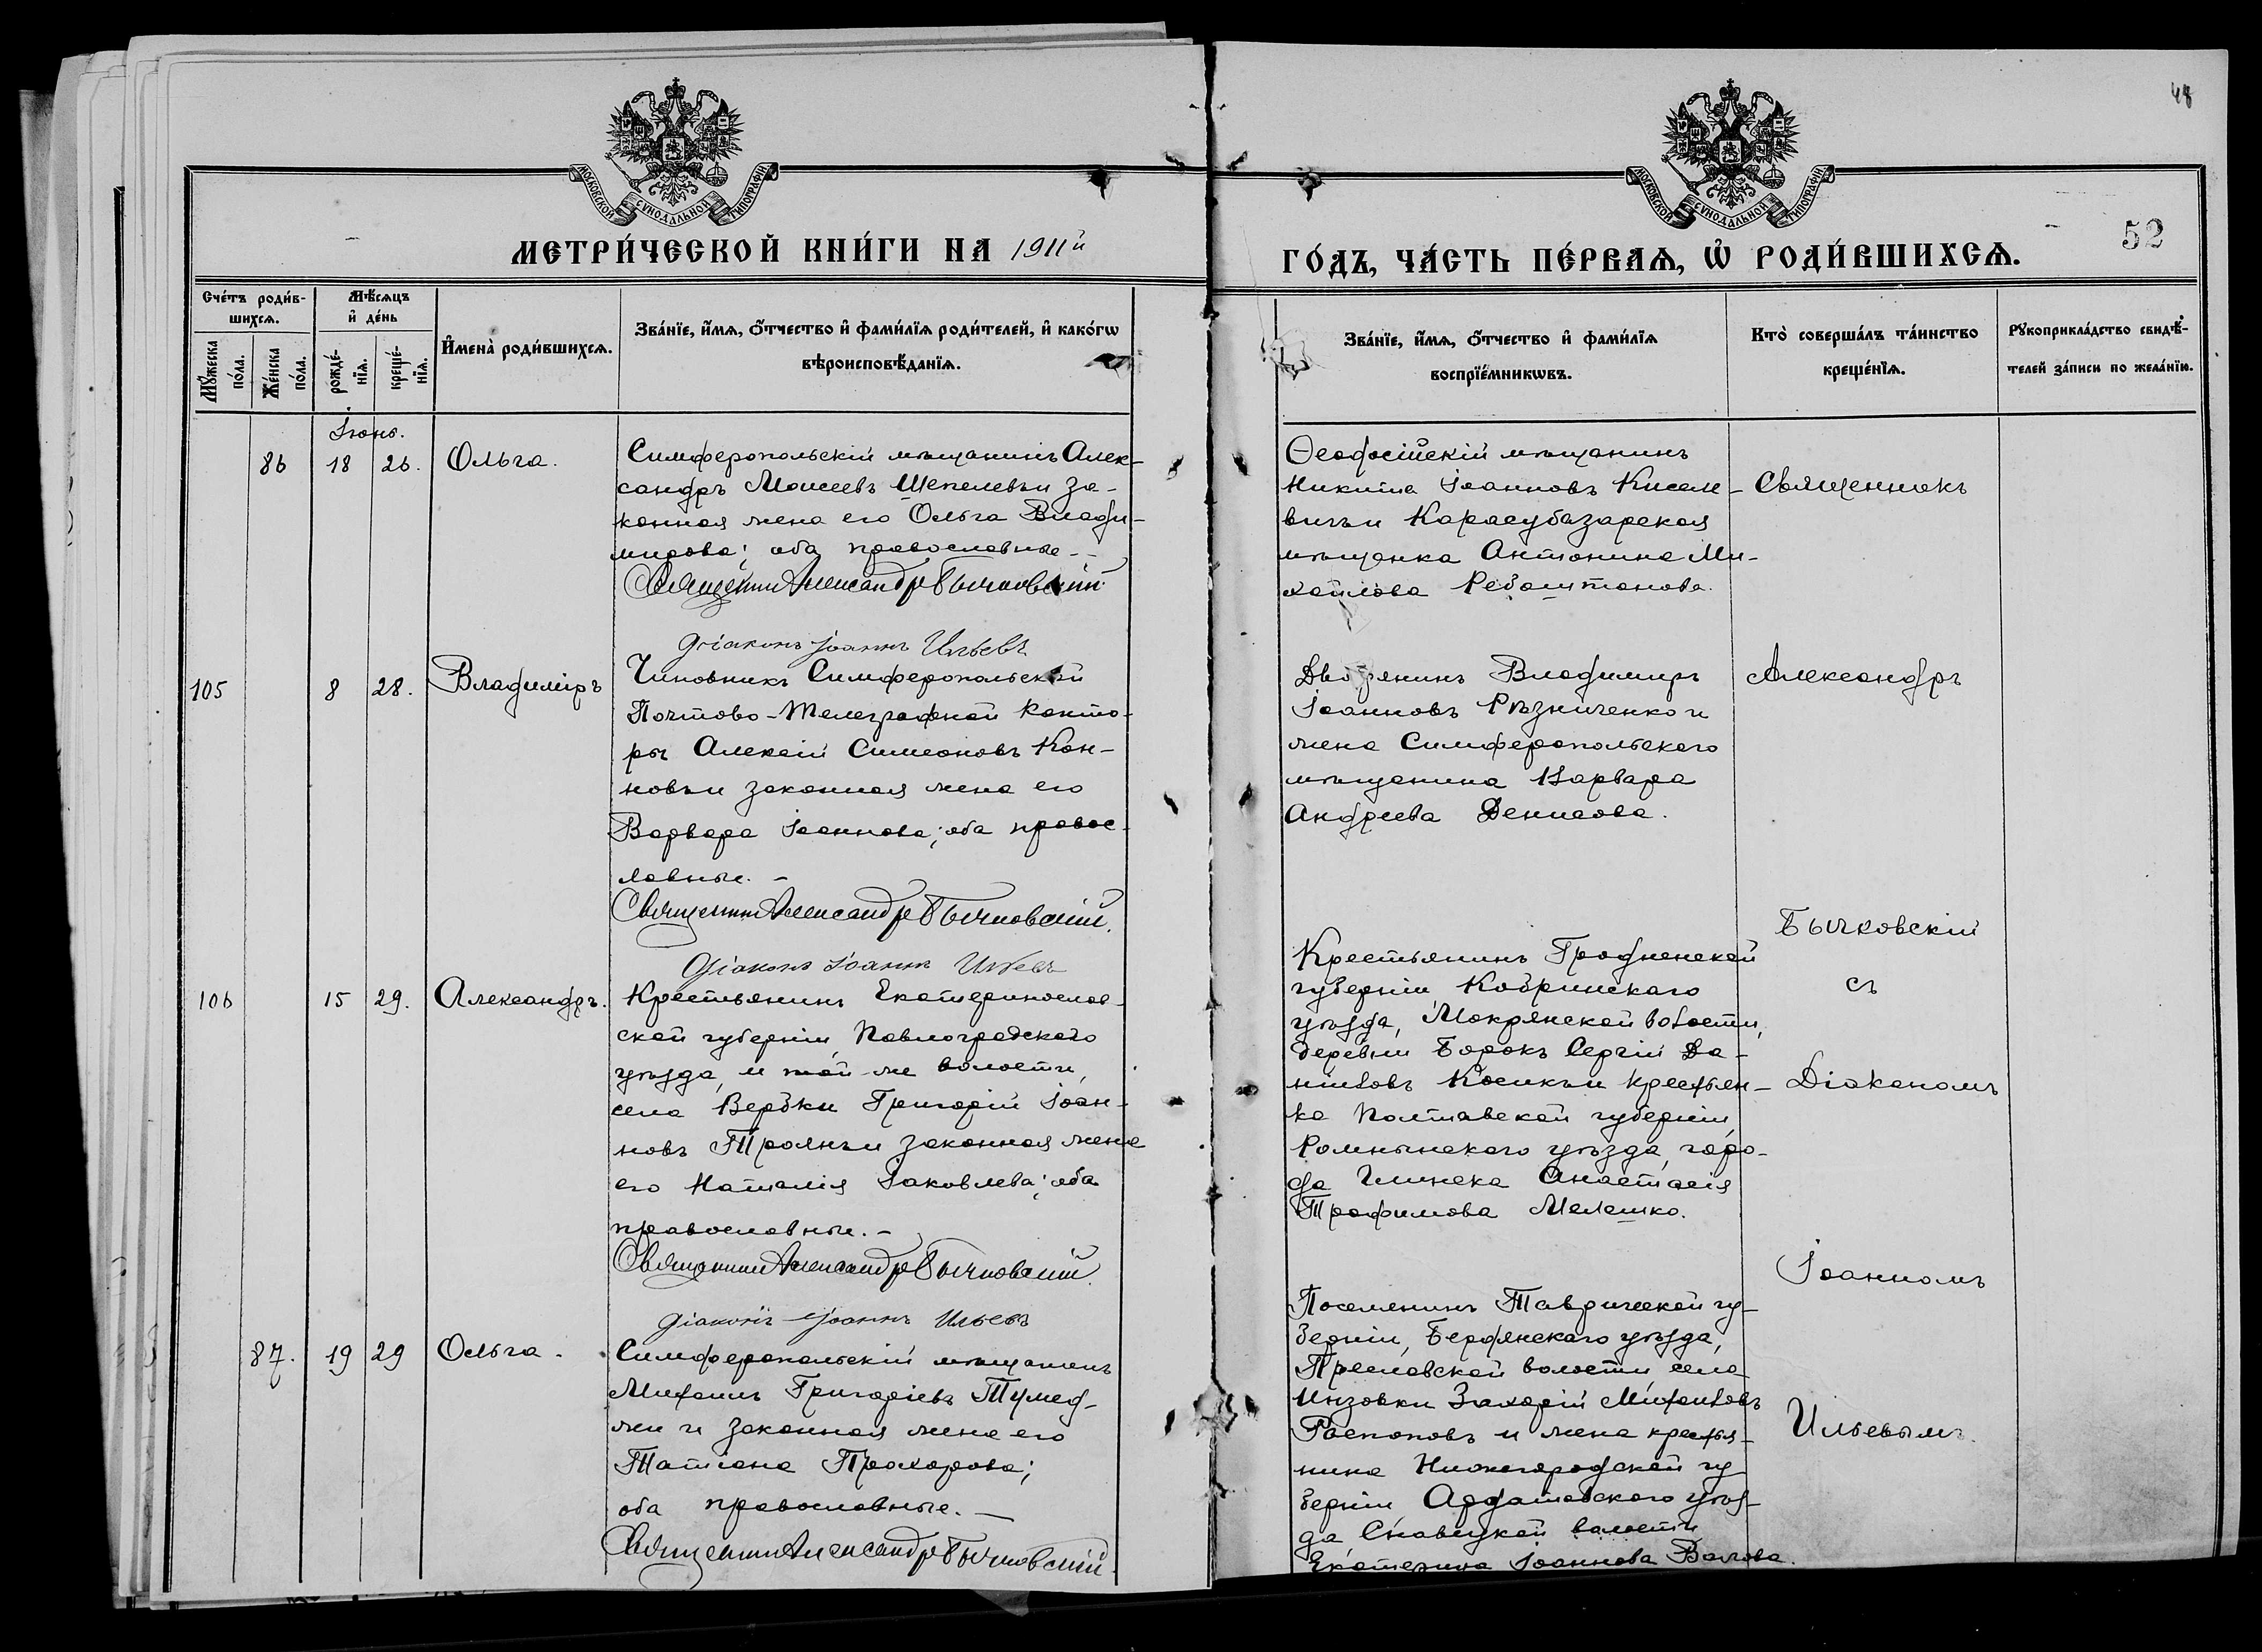 48
МОСКОВСКОЙ СѴНОДАЛЬНОЙ ТИПОГРАФІИ
МОСКОВСКОЙ СѴНОДАЛЬНОЙ ТИПОГРАФІИ
МЕТРИ́ЧЕСКОЙ КНИ́ГИ НА 1911й
ГО́ДЪ, ЧА́СТЬ ПЕ́РВАѦ, Ѽ РОДИ́ВШИХСѦ.
52
Сче́тъ роди́в-
шихсѧ.
Мѣ́сѧцъ
и҆ де́нь
Мꙋ́жеска
по́ла.
Же́нска
по́ла.
рожде́-
нїѧ.
креще́-
нїѧ.
И҆мена̀ роди́вшихсѧ.
Зва́нїе, и҆́мѧ, ѻ҆́тчество и҆ фами́лїѧ роди́телей, и҆ како́гѡ
вѣроисповѣ́данїѧ.
Зва́нїе, и҆́мѧ, ѻ҆́тчество и҆ фами́лїѧ
воспрїе́мникѡвъ.
Кто̀ соверша́лъ та́инство
креще́нїѧ.
Рꙋкоприкла́дство свидѣ́-
телей за́писи по жела́нїю.
Іюнь.
86 18 26. Ольга.
Симферопольскій мѣщанинъ Алек-
сандръ Моисеевъ Шепелевъ и за-
конная жена его Ольга Влади-
мирова; оба православные.-
Священникъ Александръ Бычковскій
Діаконъ Іоаннъ Ильевъ
Ѳеодосійскій мѣщанинъ
Никита Іоанновъ Кисле-
вичъ и Карасубазарская
мѣщанка Антонина Ми-
хайлова
Священникъ
105 8 28. Владиміръ
Чиновникъ Симферопольской
Почтово-Телеграфной Конто-
ры Алексій Симеоновъ Кон-
новъ и законная жена его
Варвара Іоаннова; оба правос-
лавные.-
Священникъ Александръ Бычковскій.
Діаконъ Іоаннъ Ильевъ
Дворянинъ Владимиръ
Іоанновъ Рѣзниченко и
жена Симферопольского
мѣщанина Варвара
Андреева Денисова.
Александръ
Бычковскій
106 15 29. Александръ.
Крестьянинъ Екатеринослав-
ской губерніи, Павлоградского
уѣзда, и той-же волости,
села Вербки Григорій Іоан-
новъ Троянъ и законная жена
его Наталія Іаковлева; оба
православные.-
Священникъ Александръ Бычковскій.
Діаконъ Іоаннъ Ильевъ
Крестьянинъ Гродненской
губерніи, Кобринскаго
уѣзда, Мокрянской волости,
деревни Борокъ Сергій Да-
ніиловъ Косикъ и крестьян-
ка Полтавской губерніи,
Роменынскаго уѣзда, горо-
да Глинска Анастасія
Трофимова Мелешко.
съ
Діакономъ
Іоанномъ
87. 19 29 Ольга.
Симферопольскій мѣщанинъ
Михаилъ Григоріевъ
и законная жена его
Татіана Прохорова;
оба православные.-
Священникъ Александръ Бычковскій.
Поселянинъ Таврической гу-
берніи, Бердянскаго уѣзда,
Преславской волости, села
Инзовки Захарій Михаиловъ
Распоповъ и жена крестья-
нина Нижегородской гу-
берніи Ардатовского уѣз-
да волости
Екатерина Іоаннова Валова.
Ильевымъ.